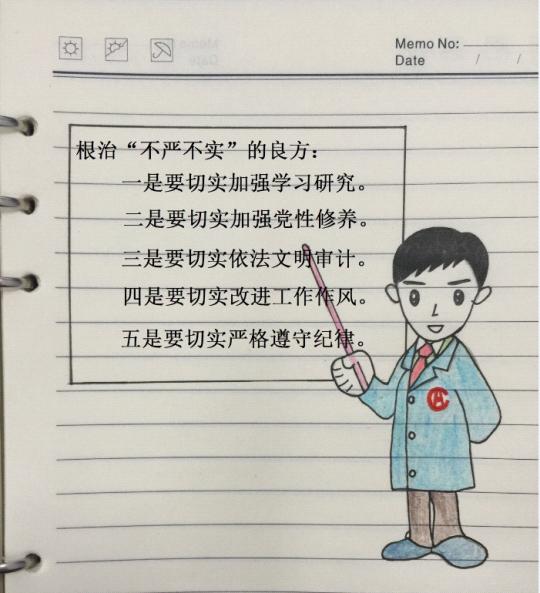 Memo No:
Date / /
根治“不严不实”的良方：
一是要切实加强学习研究。
二是要切实加强党性修养。
三是要切实依法文明审计。
四是要切实改进工作作风。
五是要切实严格遵守纪律。